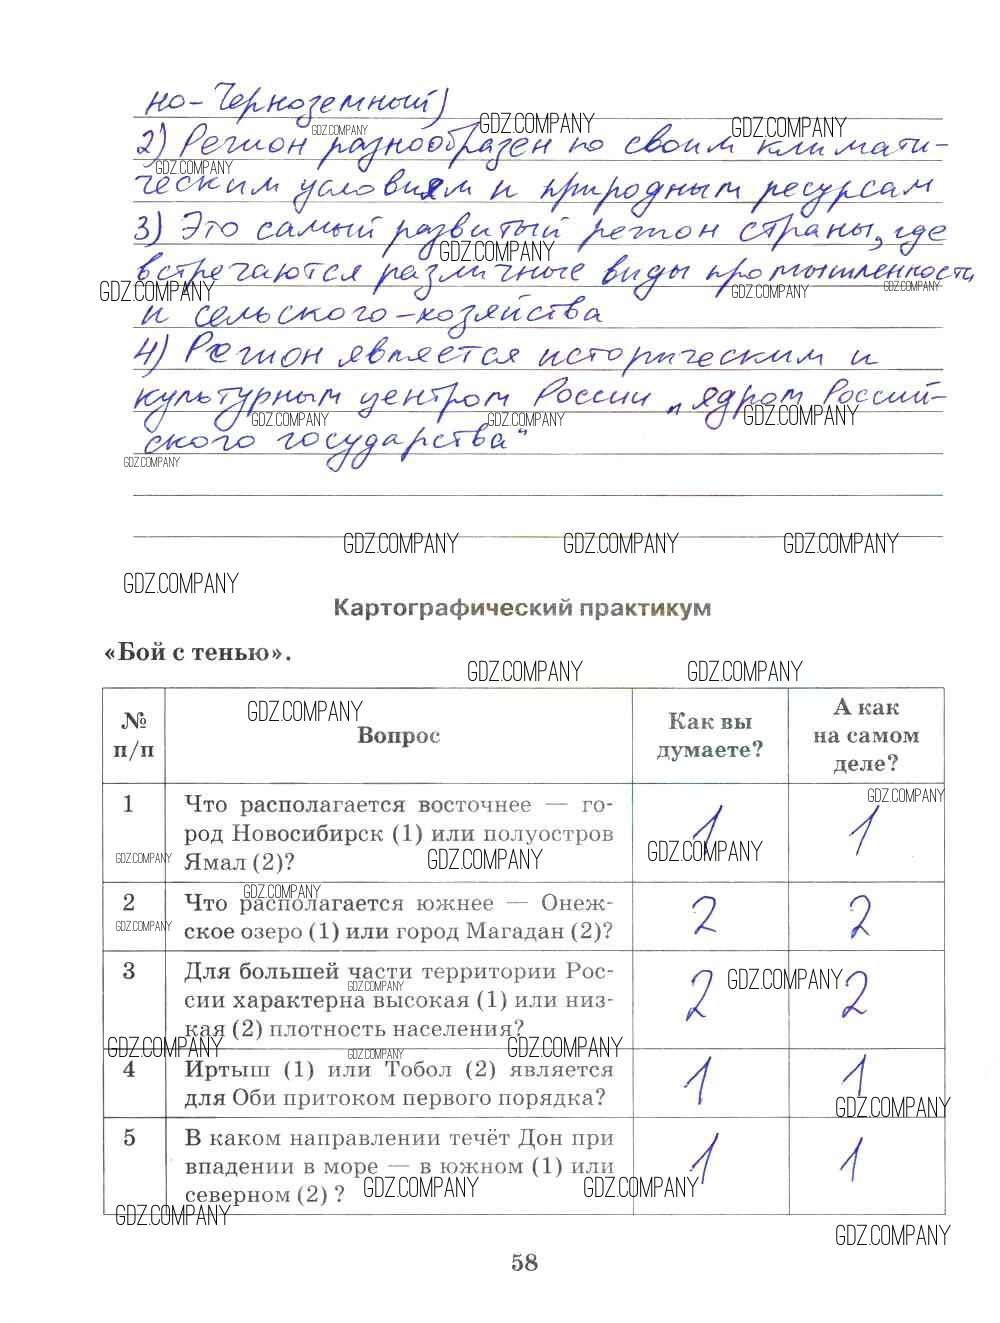 но-Черноземный)
2) Регион разнообразен по своим климати-
ческим условиям и природным ресурсам
3) Это самый развитый регион страны, где
встречаются различные виды промышленности
и сельского-хозяйства
4) Регион является историческим и
культурным центром России „ядром Россий-
ского государства“
GDZ.COMPANY GDZ.COMPANY GDZ.COMPANY
GDZ.COMPANY
Картографический практикум
«Бой с тенью».
GDZ.COMPANY GDZ.COMPANY
№ п/п Вопрос Как вы думаете? А как на самом деле?
1 Что располагается восточнее — го-
род Новосибирск (1) или полуостров
Ямал (2)? 1 1
2 Что располагается южнее — Онеж-
ское озеро (1) или город Магадан (2)? 2 2
3 Для большей части территории Рос-
сии характерна высокая (1) или низ-
кая (2) плотность населения? 2 2
4 Иртыш (1) или Тобол (2) является
для Оби притоком первого порядка? 1 1
5 В каком направлении течёт Дон при
впадении в море — в южном (1) или
северном (2) ? 1 1
GDZ.COMPANY
GDZ.COMPANY
58